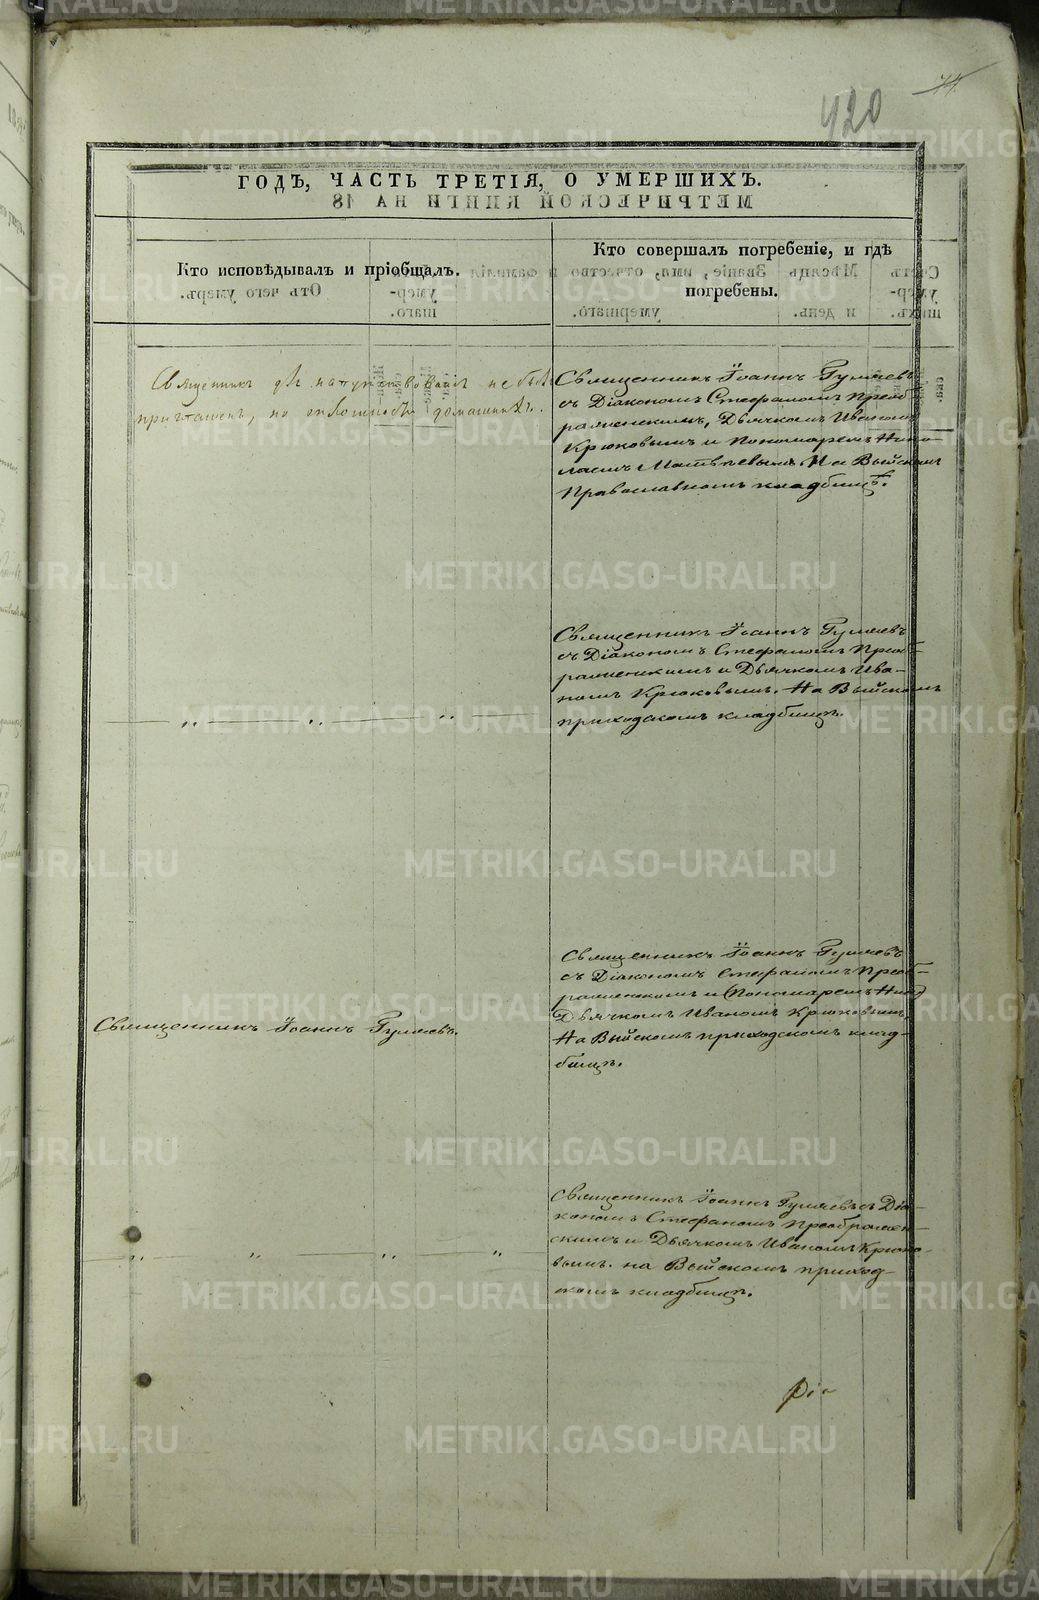 420
74.
ГОДЪ, ЧАСТЬ ТРЕТІЯ, О УМЕРШИХЪ.
Кто исповѣдывалъ и пріобщалъ.
Кто совершалъ погребеніе, и гдѣ
погребены.
Священникъ для напутствованія не былъ
приглашенъ, по оплошности домашнихъ.
Священникъ Іоаннъ Гуляевъ
съ Діакономъ Стефаномъ Преоб-
раженскимъ, Дьячкомъ Иваномъ
Крюковымъ и Пономаремъ Нико-
лаемъ Матвѣевымъ. На Выйскомъ
Православномъ кладбищѣ.
Священникъ Іоаннъ Гуляевъ
съ Діакономъ Стефаномъ Преоб-
раженскимъ и Дьячкомъ Ива-
номъ Крюковымъ. На Выйскомъ
приходскомъ кладбищѣ.
Священникъ Іоаннъ Гуляевъ.
Священникъ Іоаннъ Гуляевъ
съ Діакономъ Стефаномъ Преоб-
раженскимъ и (Пономаремъ Ник)
Дьячкомъ Иваномъ Крюковымъ.
На Выйскомъ приходскомъ клад-
бищѣ.
Священникъ Іоаннъ Гуляевъ съ Діа-
кономъ Стефаномъ Преображен-
скимъ и Дьячкомъ Иваномъ Крюко-
вымъ. на Выйскомъ приход-
скомъ кладбищѣ.
METRIKI.GASO-URAL.RU